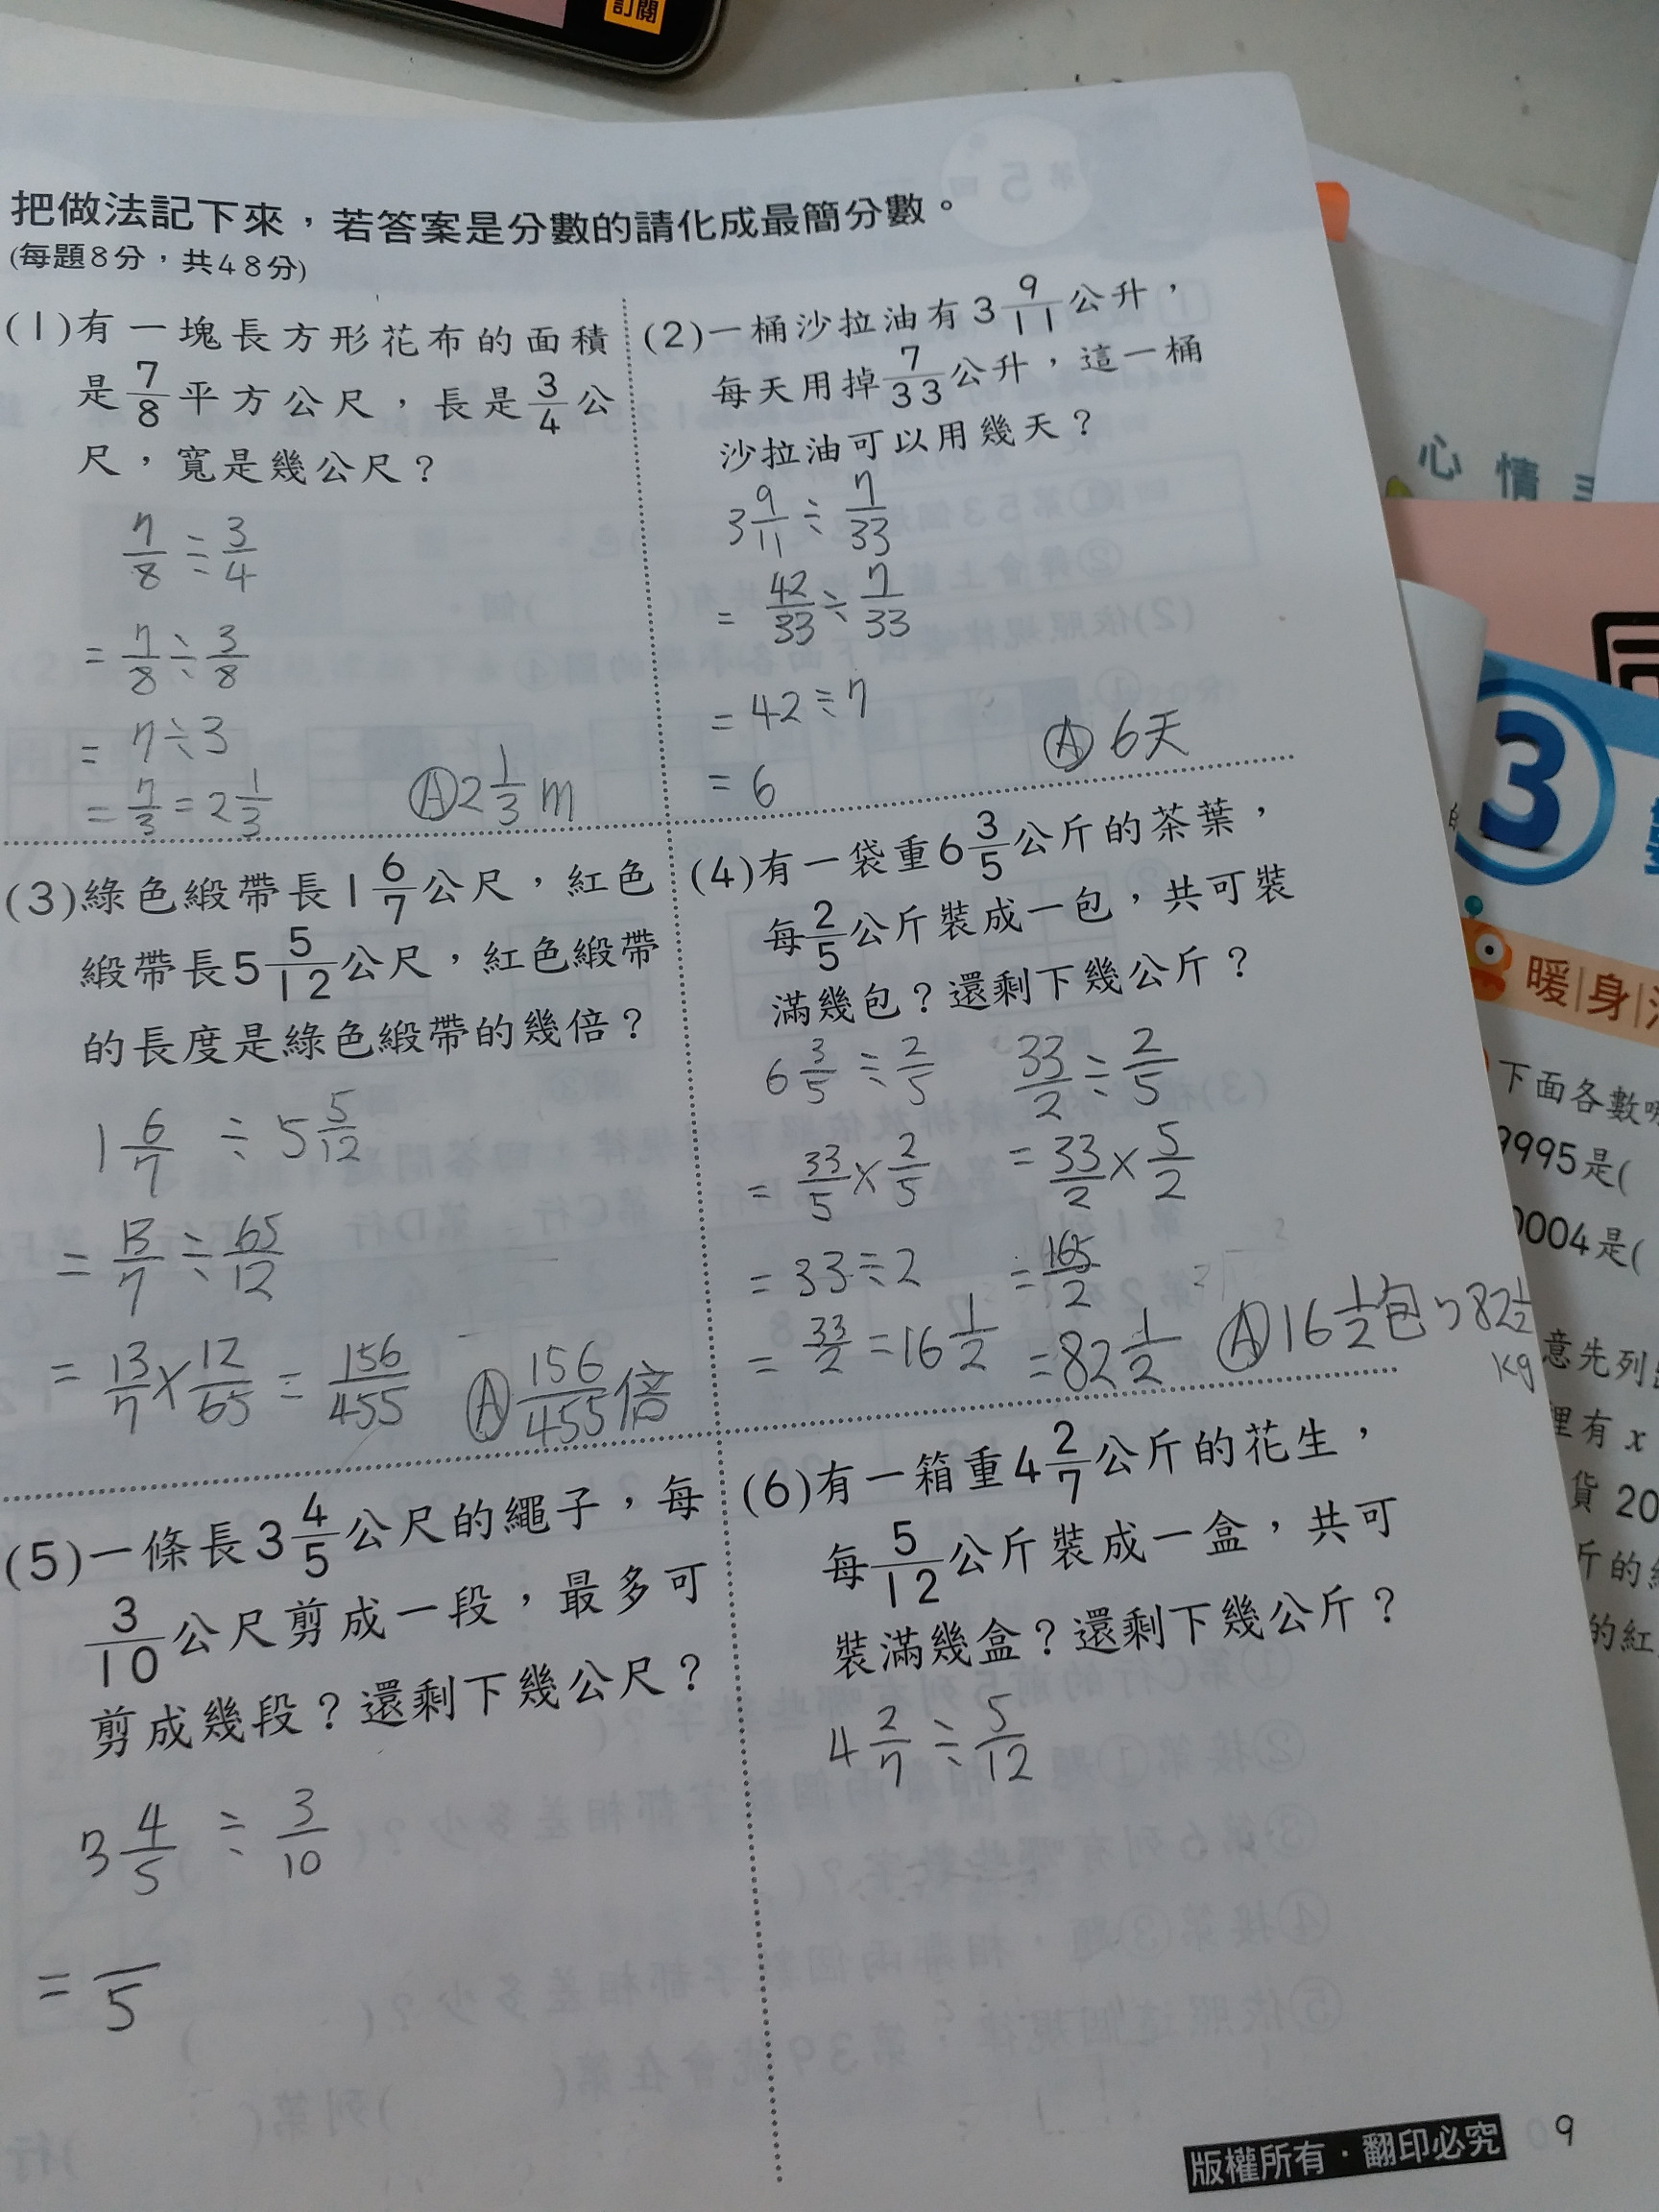 訂閱
把做法記下來，若答案是分數的請化成最簡分數。
(每題8分，共48分)
(1)有一塊長方形花布的面積
是7/8平方公尺，長是3/4公
尺，寬是幾公尺？
7/8 ÷ 3/4
= 7/8 ÷ 3/8
= 7÷3
= 7/3 = 2 1/3
Ⓐ 2 1/3 m
(2)一桶沙拉油有3 9/11公升，
每天用掉7/33公升，這一桶
沙拉油可以用幾天？
3 9/11 ÷ 7/33
= 42/33 ÷ 7/33
= 42÷7
= 6
Ⓐ 6天
(3)綠色緞帶長1 6/7公尺，紅色
緞帶長5 5/12公尺，紅色緞帶
的長度是綠色緞帶的幾倍？
1 6/7 ÷ 5 5/12
= 13/7 ÷ 65/12
= 13/7 × 12/65 = 156/455
Ⓐ 156/455倍
(4)有一袋重6 3/5公斤的茶葉，
每2/5公斤裝成一包，共可裝
滿幾包？還剩下幾公斤？
6 3/5 ÷ 2/5
= 33/5 × 2/5
= 33÷2
= 33/2 = 16 1/2
33/2 ÷ 2/5
= 33/2 × 5/2
= 165/2
= 82 1/2
Ⓐ 16 1/2包，82 1/2
kg
(5)一條長3 4/5公尺的繩子，每
3/10公尺剪成一段，最多可
剪成幾段？還剩下幾公尺？
3 4/5 ÷ 3/10
= /5
(6)有一箱重4 2/7公斤的花生，
每5/12公斤裝成一盒，共可
裝滿幾盒？還剩下幾公斤？
4 2/7 ÷ 5/12
版權所有·翻印必究
9
心情
3
暖|身|
下面各數
9995是(
0004是(
意先列
裡有x
貨20
斤的
的紅